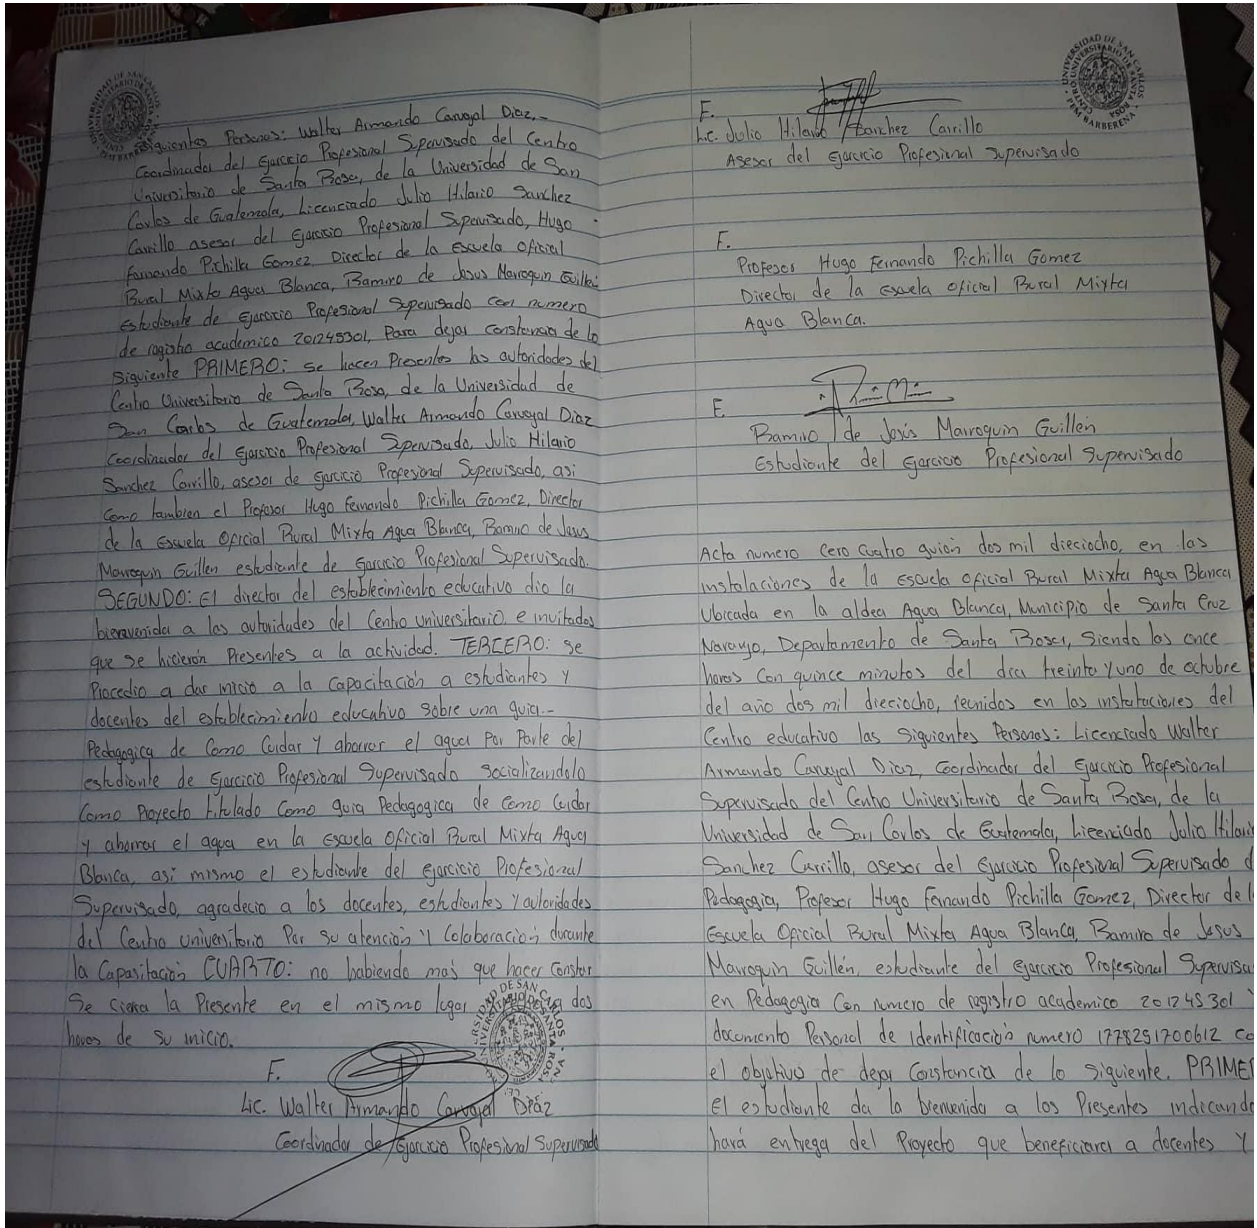 siguientes Personas: Walter Armando Carvajal Diaz.-
Coordinador del Ejercicio Profesional Supervisado del Centro
Universitario de Santa Rosa, de la Universidad de San
Carlos de Guatemala, Licenciado Julio Hilario Sanchez
Carrillo asesor del Ejercicio Profesional Supervisado, Hugo -
Fernando Pichilla Gomez, Director de la Escuela Oficial
Rural Mixta Agua Blanca, Ramiro de Jesus Marroquin Guillen
estudiante de Ejercicio Profesional Supervisado con numero
de registro academico 201245301, Para dejar constancia de lo
Siguiente PRIMERO: se hacen Presentes las autoridades del
Centro Universitario de Santa Rosa, de la Universidad de
San Carlos de Guatemala, Walter Armando Carvajal Diaz
Coordinador del Ejercicio Profesional Supervisado, Julio Hilario
Sanchez Carrillo, asesor de Ejercicio Profesional Supervisado, asi
Como tambien el Profesor Hugo Fernando Pichilla Gomez, Director
de la Escuela Oficial Rural Mixta Agua Blanca, Ramiro de Jesus
Marroquin Guillen estudiante de Ejercicio Profesional Supervisado.
SEGUNDO: El director del establecimiento educativo dio la
bienvenida a las autoridades del Centro universitario e invitados
que se hicierón Presentes a la actividad. TERCERO: se
Procedio a dar inicio a la capacitación a estudiantes y
docentes del establecimiento educativo sobre una guia.-
Pedagogica de Como Cuidar y ahorrar el agua Por Parte del
estudiante de Ejercicio Profesional Supervisado socializandolo
Como Proyecto titulado Como guia Pedagogica de Como Cuidar
y ahorrar el agua en la Escuela Oficial Rural Mixta Agua
Blanca, asi mismo el estudiante del ejercicio Profesional
Supervisado, agradecio a los docentes, estudiantes y autoridades
del Centro universitario Por su atención y Colaboración durante
la Capasitación CUARTO: no habiendo más que hacer Constar
Se cierra la Presente en el mismo lugar dos
horas de su inicio.
F.
Lic. Walter Armando Carvajal Diáz
Coordinador de Ejercicio Profesional Supervisado
F.
Lic. Julio Hilario Sanchez Carrillo
Asesor del Ejercicio Profesional Supervisado
F.
Profesor Hugo Fernando Pichilla Gomez
Director de la Escuela Oficial Rural Mixta
Agua Blanca.
F.
Ramiro de Jesús Marroquin Guillén
Estudiante del Ejercicio Profesional Supervisado
Acta numero cero cuatro guión dos mil dieciocho, en las
instalaciones de la Escuela Oficial Rural Mixta Agua Blanca
Ubicada en la aldea Agua Blanca, Municipio de Santa Cruz
Naranjo, Departamento de Santa Rosa, Siendo las once
horas Con quince minutos del dia treinta y uno de octubre
del año dos mil dieciocho, reunidos en las instalaciones del
Centro educativo las Siguientes Personas: Licenciado Walter
Armando Carvajal Diaz, Coordinador del Ejercicio Profesional
Supervisado del Centro Universitario de Santa Rosa, de la
Universidad de San Carlos de Guatemala, Licenciado Julio Hilario
Sanchez Carrillo, asesor del Ejercicio Profesional Supervisado d
Pedagogia, Profesor Hugo Fernando Pichilla Gomez, Director de la
Escuela Oficial Rural Mixta Agua Blanca, Ramiro de Jesus
Marroquin Guillén, estudiante del Ejercicio Profesional Supervisa
en Pedagogia Con numero de registro academico 201245301
documento Personal de identificación numero 1778251700612 co
el objetivo de dejar Constancia de lo Siguiente. PRIME
el estudiante da la bienvenida a los Presentes indicando
hará entrega del Proyecto que beneficiara a docentes y